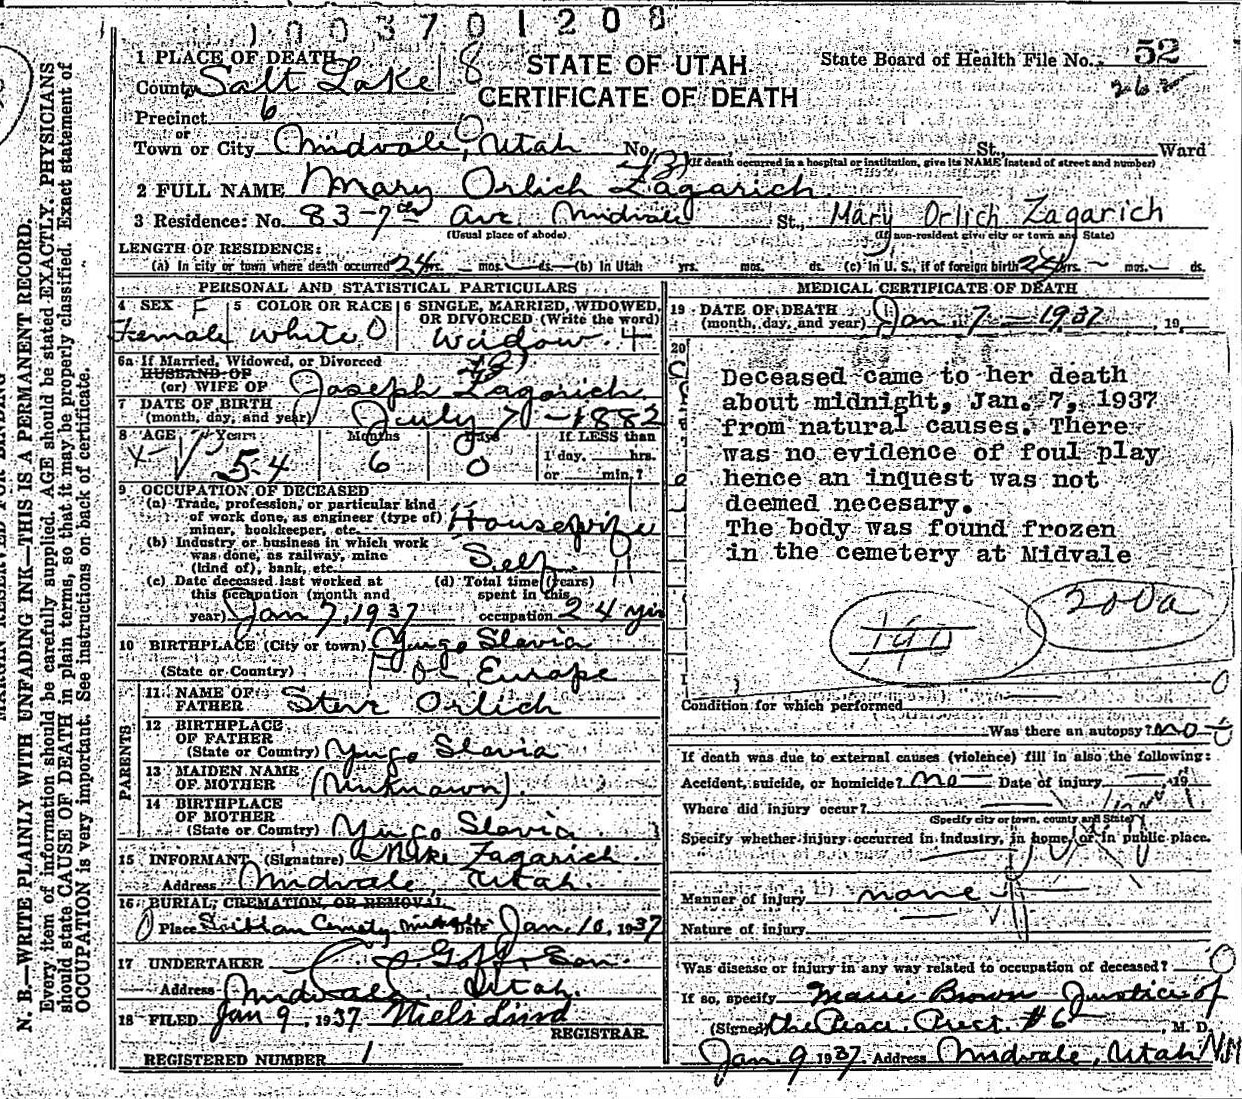 1003701208
1 PLACE OF DEATH
County Salt Lake 18
STATE OF UTAH
CERTIFICATE OF DEATH
State Board of Health File No. 52
262
Precinct 6
or
Town or City Midvale, Utah No. St., Ward
(If death occurred in a hospital or institution, give its NAME instead of street and number)
2 FULL NAME Mary Orlich Zagarich
3 Residence: No. 83-7th Ave Midvale St., Mary Orlich Zagarich
(Usual place of abode) (If non-resident give city or town and State)
LENGTH OF RESIDENCE:
(a) In city or town where death occurred 24 yrs. mos. ds. (b) In Utah yrs. mos. ds. (c) In U. S., if of foreign birth 24 yrs. mos. ds.
PERSONAL AND STATISTICAL PARTICULARS
4 SEX F
Female
5 COLOR OR RACE
White O
6 SINGLE, MARRIED, WIDOWED, OR DIVORCED (Write the word)
Widow. 4
6a If Married, Widowed, or Divorced
HUSBAND OF
(or) WIFE OF Joseph Zagarich
7 DATE OF BIRTH
(month, day, and year) July 7 - 1882
8 AGE Years Months Days If LESS than
54 6 0 1 day, hrs.
or min.?
9 OCCUPATION OF DECEASED
(a) Trade, profession, or particular kind
of work done, as engineer (type of)
miner, bookkeeper, etc. Housewife
(b) Industry or business in which work
was done, as railway, mine
(kind of), bank, etc. Self
(c) Date deceased last worked at
this occupation (month and
year) Jan 7, 1937
(d) Total time (years)
spent in this
occupation 24 yrs
10 BIRTHPLACE (City or town) Yugo Slavia
(State or Country) Europe
PARENTS
11 NAME OF
FATHER Steve Orlich
12 BIRTHPLACE
OF FATHER
(State or Country) Yugo Slavia
13 MAIDEN NAME
OF MOTHER (Unknown)
14 BIRTHPLACE
OF MOTHER
(State or Country) Yugo Slavia
15 INFORMANT (Signature) Mike Zagarich
Address Midvale, Utah.
16 BURIAL, CREMATION, OR REMOVAL
Place Serbian Cemety Midvale Date Jan. 10, 1937
17 UNDERTAKER Goff & Son.
Address Midvale, Utah.
18 FILED Jan 9, 1937 Niels Lind
REGISTRAR.
REGISTERED NUMBER 1
MEDICAL CERTIFICATE OF DEATH
19 DATE OF DEATH
(month, day, and year) Jan. 7 - 1937, 19
20
Deceased came to her death
about midnight, Jan. 7, 1937
from natural causes. There
was no evidence of foul play
hence an inquest was not
deemed necesary.
The body was found frozen
in the cemetery at Midvale
200a
190
Condition for which performed
Was there an autopsy? no
If death was due to external causes (violence) fill in also the following:
Accident, suicide, or homicide? no Date of injury , 19
Where did injury occur?
(Specify city or town, county and State)
Specify whether injury occurred in industry, in home, or in public place.
Manner of injury none
Nature of injury
Was disease or injury in any way related to occupation of deceased?
If so, specify Marie Brown Justice of
(Signed) the Peace. Prect. #6, M. D.
Jan. 9 1937 Address Midvale, Utah
N. B.—WRITE PLAINLY WITH UNFADING INK—THIS IS A PERMANENT RECORD.
Every item of information should be carefully supplied. AGE should be stated EXACTLY. PHYSICIANS
should state CAUSE OF DEATH in plain terms, so that it may be properly classified. Exact statement of
OCCUPATION is very important. See instructions on back of certificate.